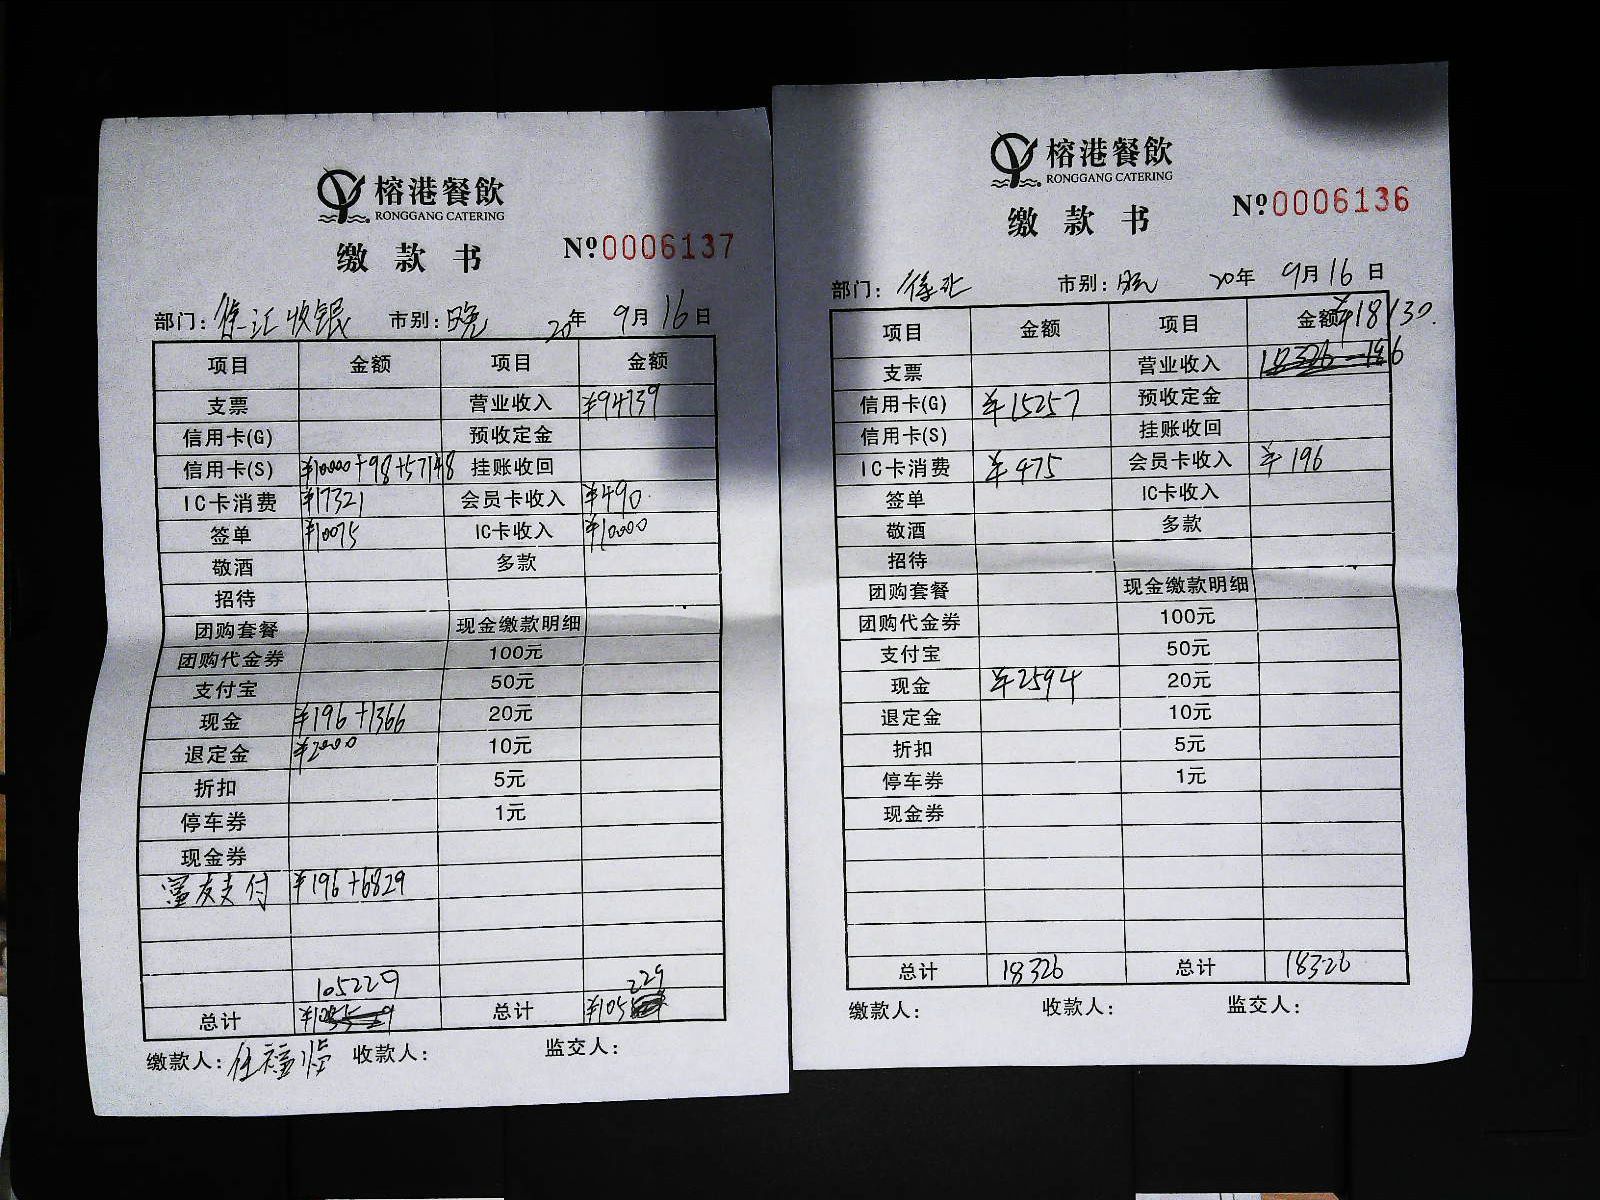 榕港餐飲
RONGGANG CATERING
缴款书
Nº0006137
部门：徐汇收银 市别：晚 20年 9月16日
项目 金额 项目 金额
支票 营业收入 ¥94739
信用卡(G) 预收定金
信用卡(S) ¥10000+98+57148 挂账收回
IC卡消费 ¥17321 会员卡收入 ¥490
签单 ¥10075 IC卡收入 ¥10000
敬酒 多款
招待
团购套餐 现金缴款明细
团购代金券 100元
支付宝 50元
现金 ¥196+1366 20元
退定金 ¥2000 10元
折扣 5元
停车券 1元
现金券
支付 ¥196+6829
105229 229
总计 总计 ¥105
缴款人： 收款人： 监交人：
榕港餐飲
RONGGANG CATERING
缴款书
Nº0006136
部门：徐汇 市别：晚 20年 9月16日
项目 金额 项目 金额 ¥18130
支票 营业收入
信用卡(G) ¥15257 预收定金
信用卡(S) 挂账收回
IC卡消费 ¥475 会员卡收入 ¥196
签单 IC卡收入
敬酒 多款
招待
团购套餐 现金缴款明细
团购代金券 100元
支付宝 50元
现金 ¥2594 20元
退定金 10元
折扣 5元
停车券 1元
现金券
总计 18326 总计 18326
缴款人： 收款人： 监交人：